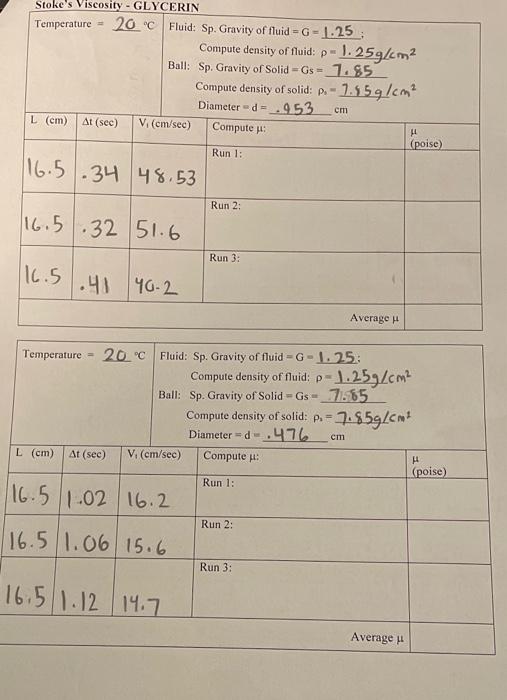 Stoke's Viscosity - GLYCERIN
Temperature = 20 °C Fluid: Sp. Gravity of fluid = G = 1.25 ;
Compute density of fluid: ρ = 1.25g/cm²
Ball: Sp. Gravity of Solid = Gs = 7.85
Compute density of solid: ρₛ = 7.85g/cm²
Diameter = d = .953 cm
L (cm) Δt (sec) Vₛ (cm/sec) Compute μ: μ (poise)
Run 1:
16.5 .34 48.53
Run 2:
16.5 .32 51.6
Run 3:
16.5 .41 40.2
Average μ
Temperature = 20 °C Fluid: Sp. Gravity of fluid = G = 1.25:
Compute density of fluid: ρ = 1.25g/cm²
Ball: Sp. Gravity of Solid = Gs = 7.85
Compute density of solid: ρₛ = 7.85g/cm²
Diameter = d = .476 cm
L (cm) Δt (sec) Vₛ (cm/sec) Compute μ: μ (poise)
Run 1:
16.5 1.02 16.2
Run 2:
16.5 1.06 15.6
Run 3:
16.5 1.12 14.7
Average μ